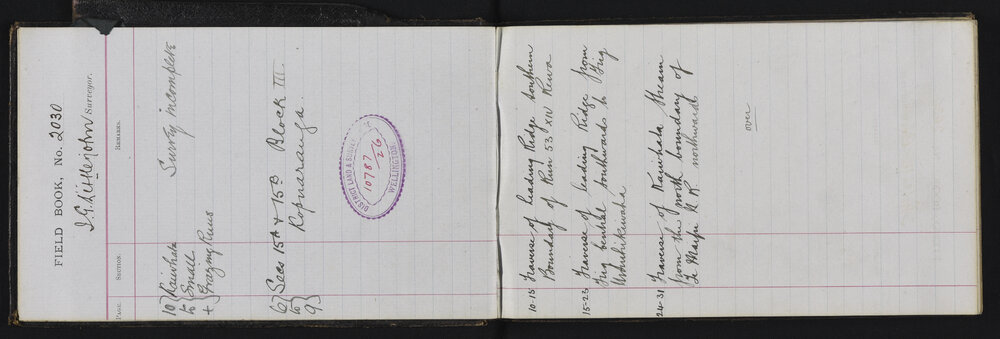 FIELD BOOK, No. 2030
I.G. Littlejohn Surveyor.
PAGE. SECTION. REMARKS.
10 Kaiwhata Survey incomplete
to Small
+ Grazing Runs
6 Secs 15A + 15B Block III
to Kopuaranga.
9
DISTRICT LAND & SURVEY
10787
/26
WELLINGTON
10-15 Traverse of leading Ridge southern
Boundary of Run 53 XIV Rewa
15-23 Traverse of leading Ridge from
Trig central southwards to Trig
24-31 Traverse of Kaiwhata stream
from the north boundary of
Te Maipi N R northwards
over